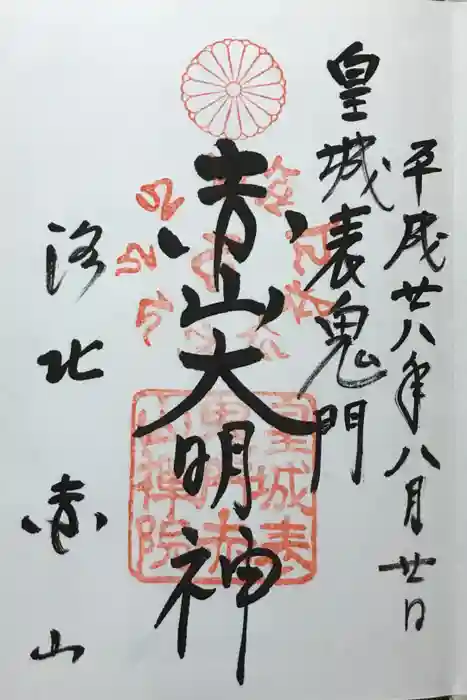 平成廿八年八月廿日
皇城表鬼門
赤山大明神
洛北 赤山
皇城表
鬼門赤
山禅院